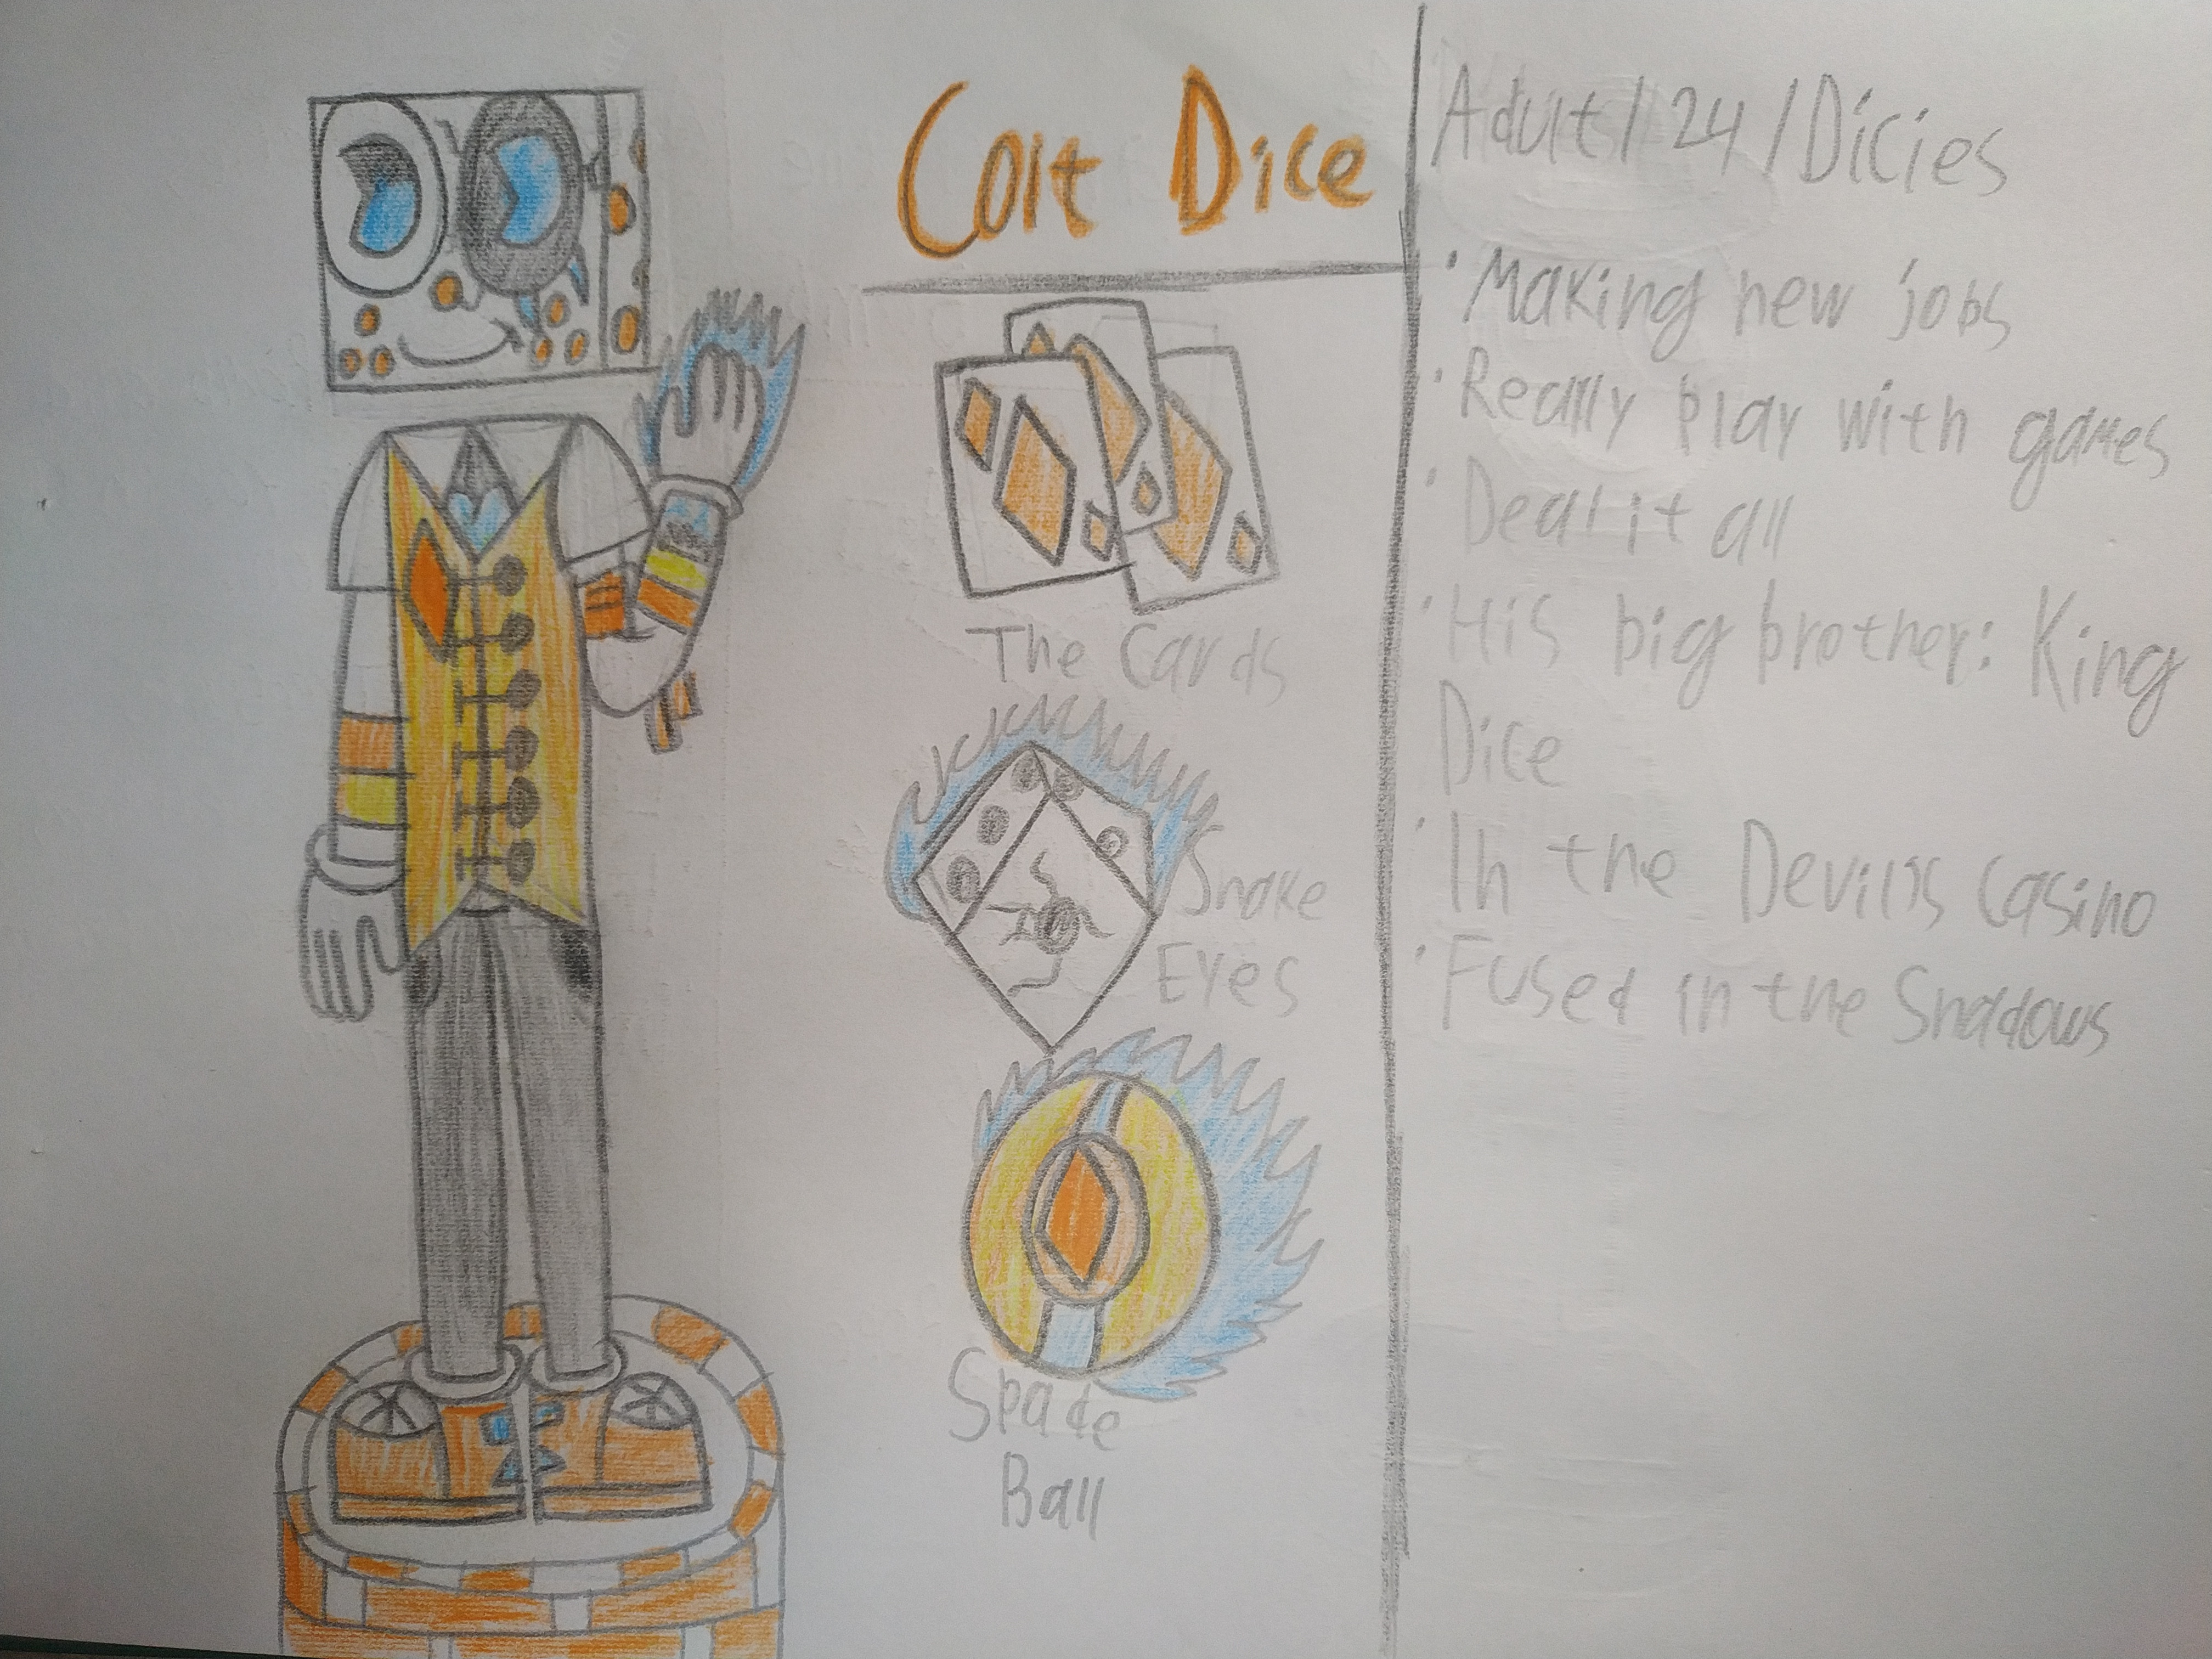 Colt Dice
The Cards
Snake
Eyes
Spade
Ball
Adult / 24 / Dicies
• Making new jobs
• Really play with games
• Deal it all
• His big brother: King
Dice
• In the Devil's Casino
• Fused in the Shadows